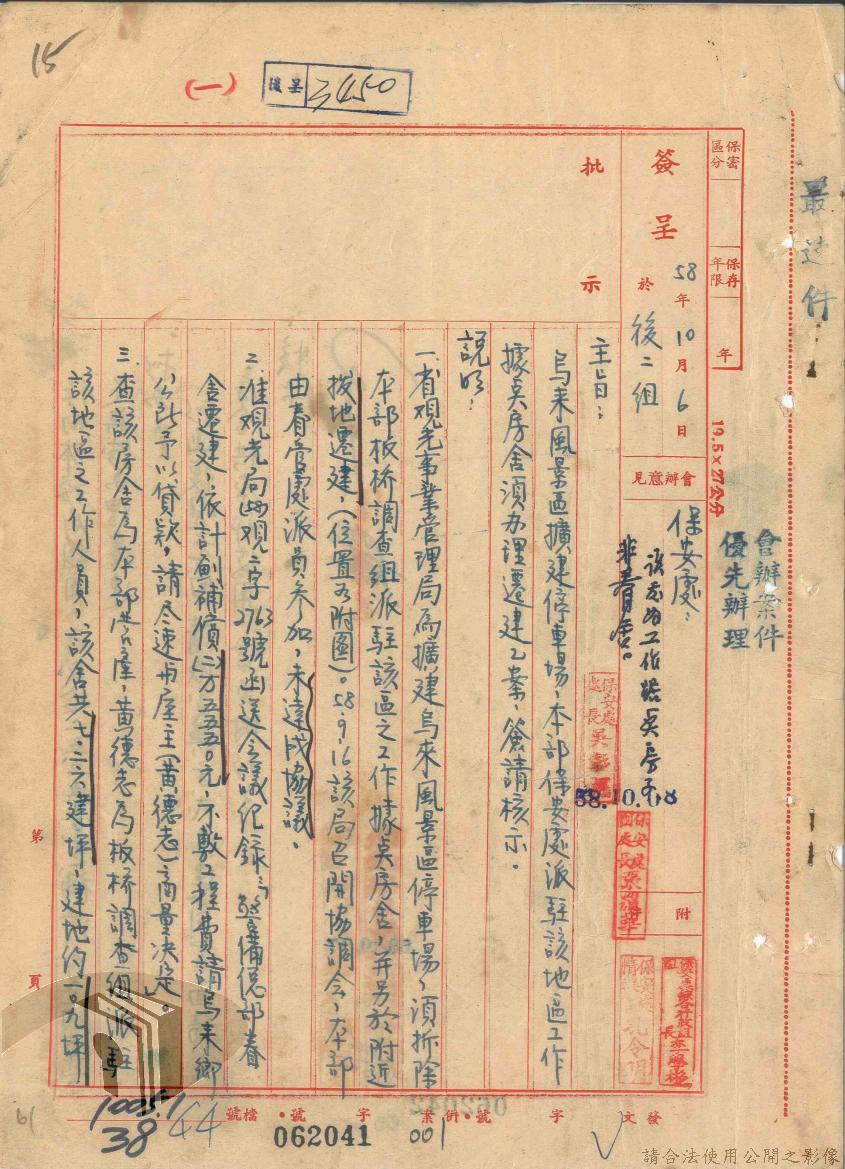 15
(一)
後呈 3450
最速件
會辦案件
優先辦理
保密區分
保存年限
年
19.5×27公分
簽呈
58年10月6日
於 後二組
會辦意見
保安處：
該志為工作據點房子
非眷舍。
58.10.08
附
批示
主旨：
烏來風景區擴建停車場，本部保安處派駐該地區工作
據點房舍須办理遷建乙案，簽請核示。
説明：
一、省观光事業管理局為擴建烏來風景區停車場，須拆除
本部板桥調查組派駐該區之工作據點房舍，并另於附近
拨地遷建，（位置另附圖）。58.9.16該局召開協調会，本部
由眷管處派員參加，未達成協議。
二、准观光局函观二字2763號函送会議纪錄：警備總部眷
舍遷建，依計劃補償（二万五五五〇元，不敷工程費請烏来鄉
公所予以貸款，請尽速與屋主（黃德老）商量決定。
三、查該房舍為本部營產，黃德老為板桥調查組派駐
該地區之工作人員，該舍共七.三六建坪，建地约一〇九坪
第
頁
發文
字
號
附
案
字
號
檔號
062041
001
1005.1
38
44
61
請合法使用公開之影像